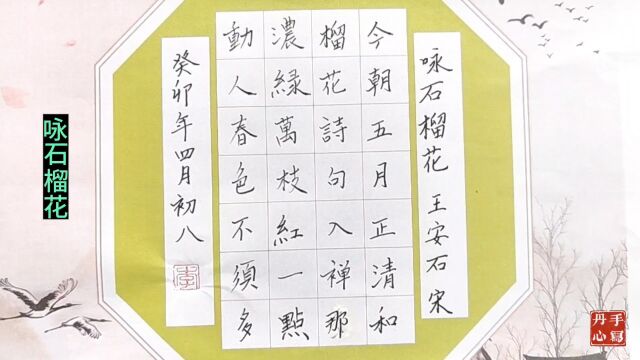 咏石榴花 王安石 宋
今朝五月正清和
榴花詩句入禅那
濃緑萬枝紅一點
動人春色不須多
癸卯年四月初八
李
咏石榴花
手寫
丹心